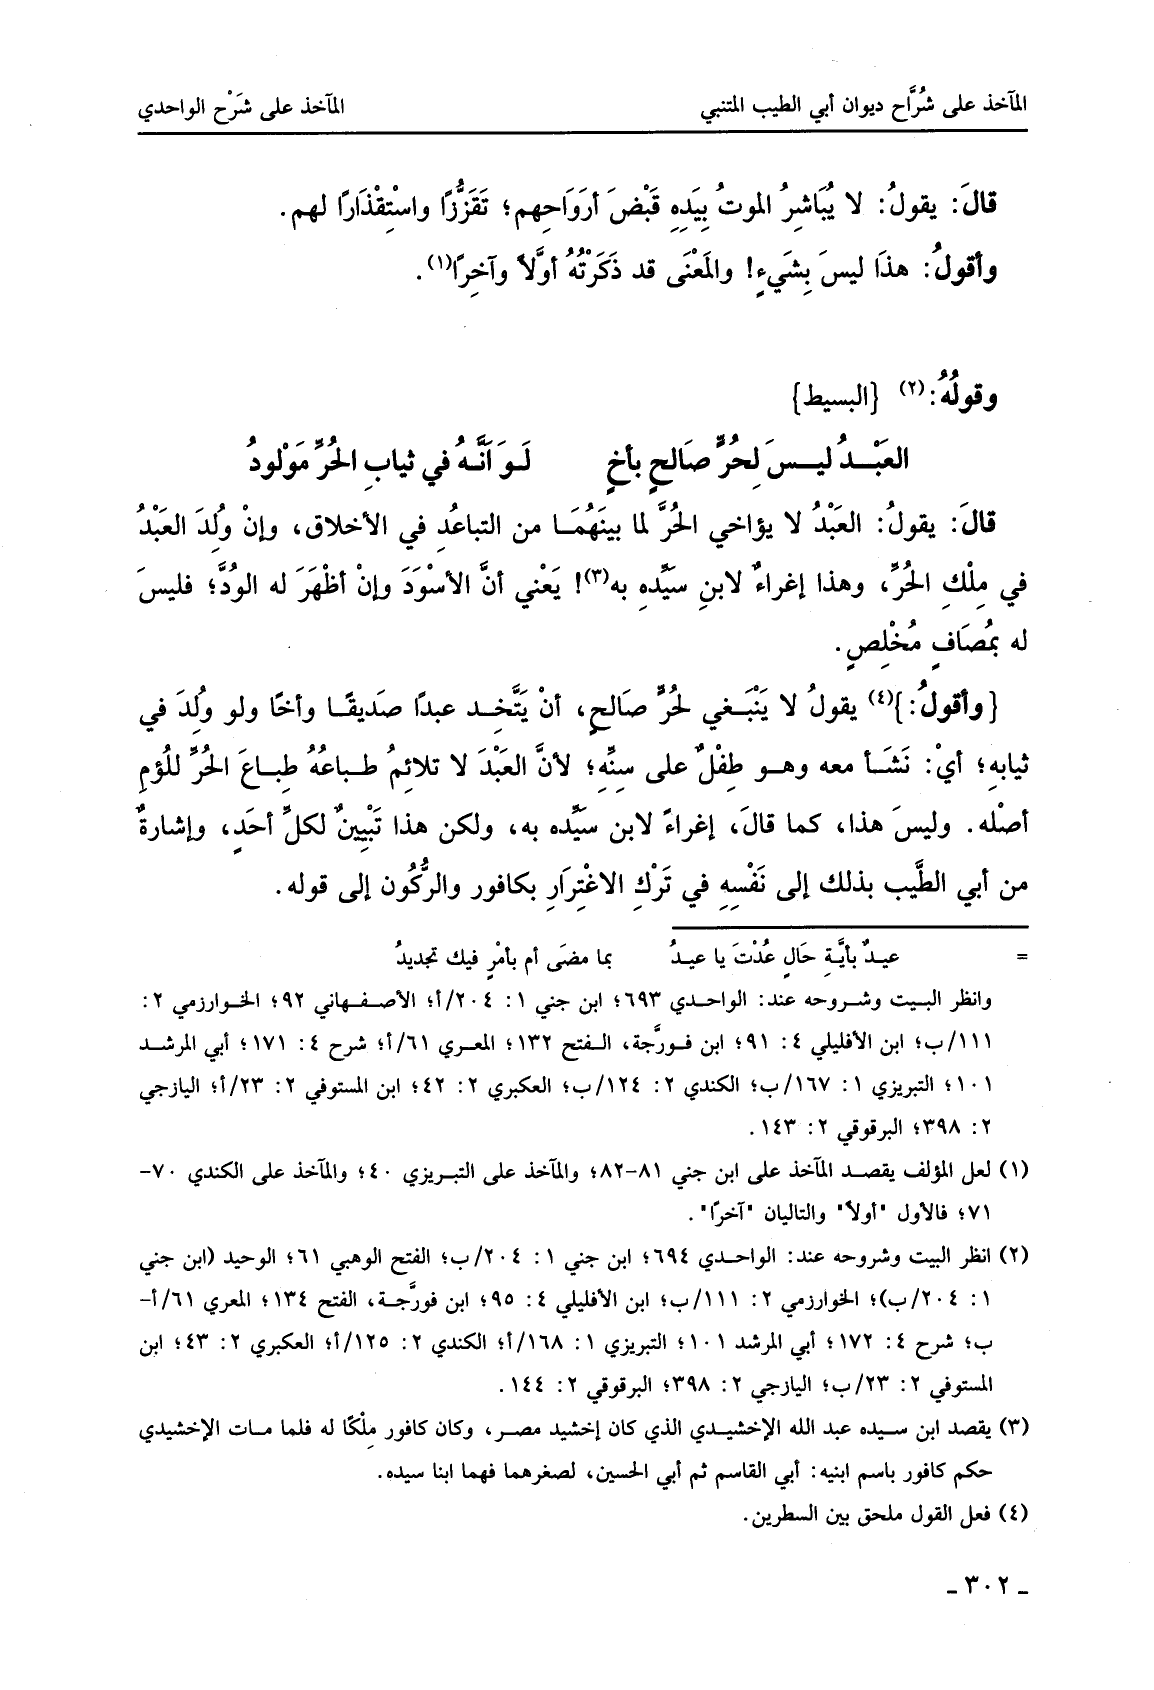 المآخذ على شُرَّاح ديوان أبي الطيب المتنبي المآخذ على شَرْح الواحدي
قالَ: يقولُ: لا يُبَاشِرُ الموتُ بِيَدِهِ قَبْضَ أرَوَاحِهِم؛ تَقَزُّزًا واسْتِقْذَارًا لهم.
وأقولُ: هذَا ليسَ بِشَيءٍ! والمَعْنَى قد ذَكَرْتُهُ أوَّلاً وآخِرًا(١).
وقولُهُ:(٢) {البسيط}
العَبْـدُ ليـسَ لِحُرٍّ صَالحٍ بأخٍ لَـوَ انَّـهُ في ثيابِ الحُرِّ مَوْلودُ
قالَ: يقولُ: العَبْدُ لا يؤاخي الحُرَّ لما بينَهُمَـا من التباعُدِ في الأخلاق، وإنْ وُلِدَ العَبْدُ
في مِلْكِ الحُرِّ، وهذا إغراءٌ لابنِ سَيِّدِهِ به(٣)! يَعْني أنَّ الأسْوَدَ وإنْ أظْهَرَ له الودَّ؛ فليسَ
له بمُصَافٍ مُخْلِصٍ.
{وأقولُ:}(٤) يقولُ لا يَنْبَـغي لحُرٍّ صَالحٍ، أنْ يَتَّخِـد عبدًا صَديقًـا وأخًا ولو وُلِدَ في
ثيابهِ؛ أيْ: نَشَـأ معه وهـو طِفْلٌ على سنِّهِ؛ لأنَّ العَبْدَ لا تلائِمُ طبـاعُهُ طِبـاعَ الحُرِّ للُؤمِ
أصْله. وليسَ هذا، كما قالَ، إغراءً لابن سَيِّده به، ولكن هذا تَبْيِينٌ لكلِّ أحَدٍ، وإشارةٌ
من أبي الطَّيب بذلك إلى نَفْسِهِ في تَرْكِ الاغْتِرَارِ بكافور والرُّكُون إلى قوله.
= عيـدٌ بأيَّـةِ حَالٍ عُدْتَ يا عيـدُ بما مضَى أم بأمْرٍ فيك تجديدُ
وانظر البـيت وشـروحه عند: الواحـدي ٦٩٣؛ ابن جني ١: ٢٠٤/أ؛ الأصـفـهاني ٩٢؛ الخـوارزمي ٢:
١١١/ب؛ ابن الأفليلي ٤: ٩١؛ ابن فـورَّجة، الـفتح ١٣٢؛ المعري ٦١/أ؛ شرح ٤: ١٧١؛ أبي المرشـد
١٠١؛ التبريزي ١: ١٦٧/ب؛ الكندي ٢: ١٢٤/ب؛ العكبري ٢: ٤٢؛ ابن المستوفي ٢: ٢٣/أ؛ اليازجي
٢: ٣٩٨؛ البرقوقي ٢: ١٤٣.
(١) لعل المؤلف يقصـد المآخذ على ابن جني ٨١-٨٢؛ والمآخذ على التبـريزي ٤٠؛ والمآخذ على الكندي ٧٠-
٧١؛ فالأول "أولاً" والتاليان "آخرًا".
(٢) انظر البيت وشروحه عند: الواحـدي ٦٩٤؛ ابن جني ١: ٢٠٤/ب؛ الفتح الوهبي ٦١؛ الوحيد (ابن جني
١: ٢٠٤/ب)؛ الخوارزمي ٢: ١١١/ب؛ ابن الأفليلي ٤: ٩٥؛ ابن فورَّجـة، الفتح ١٣٤؛ المعري ٦١/أ-
ب؛ شرح ٤: ١٧٢؛ أبي المرشد ١٠١؛ التبريزي ١: ١٦٨/أ؛ الكندي ٢: ١٢٥/أ؛ العكبري ٢: ٤٣؛ ابن
المستوفي ٢: ٢٣/ب؛ اليازجي ٢: ٣٩٨؛ البرقوقي ٢: ١٤٤.
(٣) يقصد ابن سـيده عبد الله الإخشيـدي الذي كان إخشيد مصـر، وكان كافور مِلْكًا له فلما مـات الإخشيدي
حكم كافور باسم ابنيه: أبي القاسم ثم أبي الحسين، لصغرهما فهما ابنا سيده.
(٤) فعل القول ملحق بين السطرين.
- ٣٠٢ -